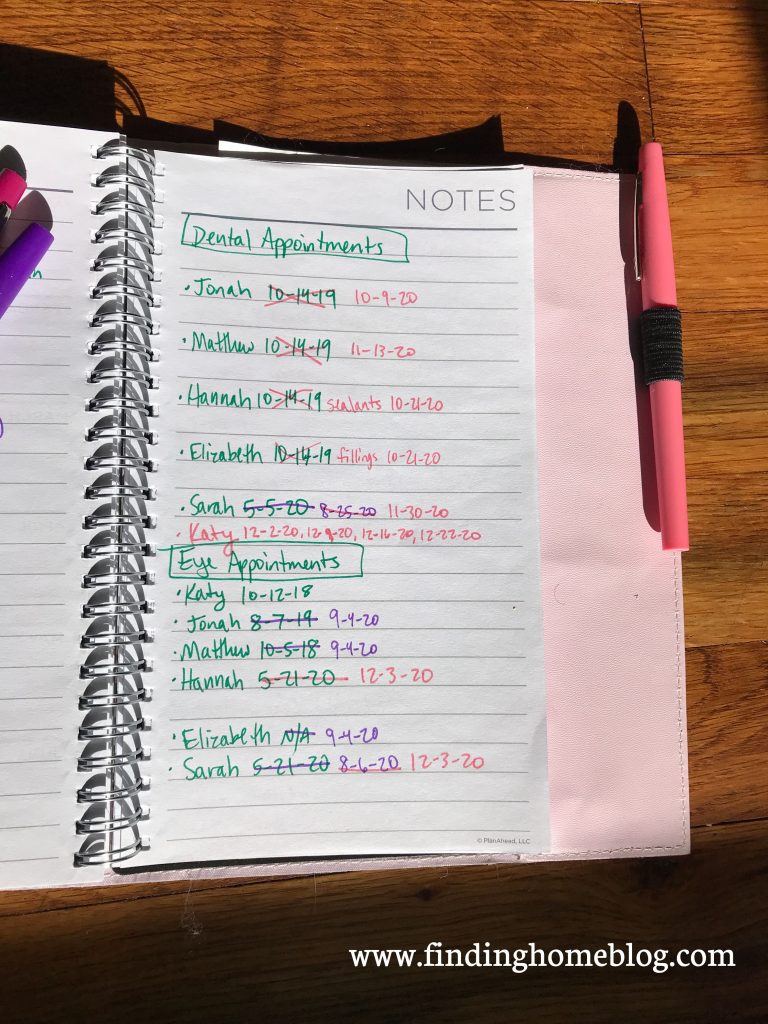 NOTES
Dental Appointments
• Jonah 10-14-19 10-9-20
• Matthew 10-14-19 11-13-20
• Hannah 10-14-19 sealants 10-21-20
• Elizabeth 10-14-19 fillings 10-21-20
• Sarah 5-5-20 8-25-20 11-30-20
• Katy 12-2-20, 12-9-20, 12-16-20, 12-22-20
Eye Appointments
• Katy 10-12-18
• Jonah 8-7-19 9-4-20
• Matthew 10-5-18 9-4-20
• Hannah 5-21-20 12-3-20
• Elizabeth N/A 9-4-20
• Sarah 5-21-20 8-6-20 12-3-20
© PlanAhead, LLC
www.findinghomeblog.com